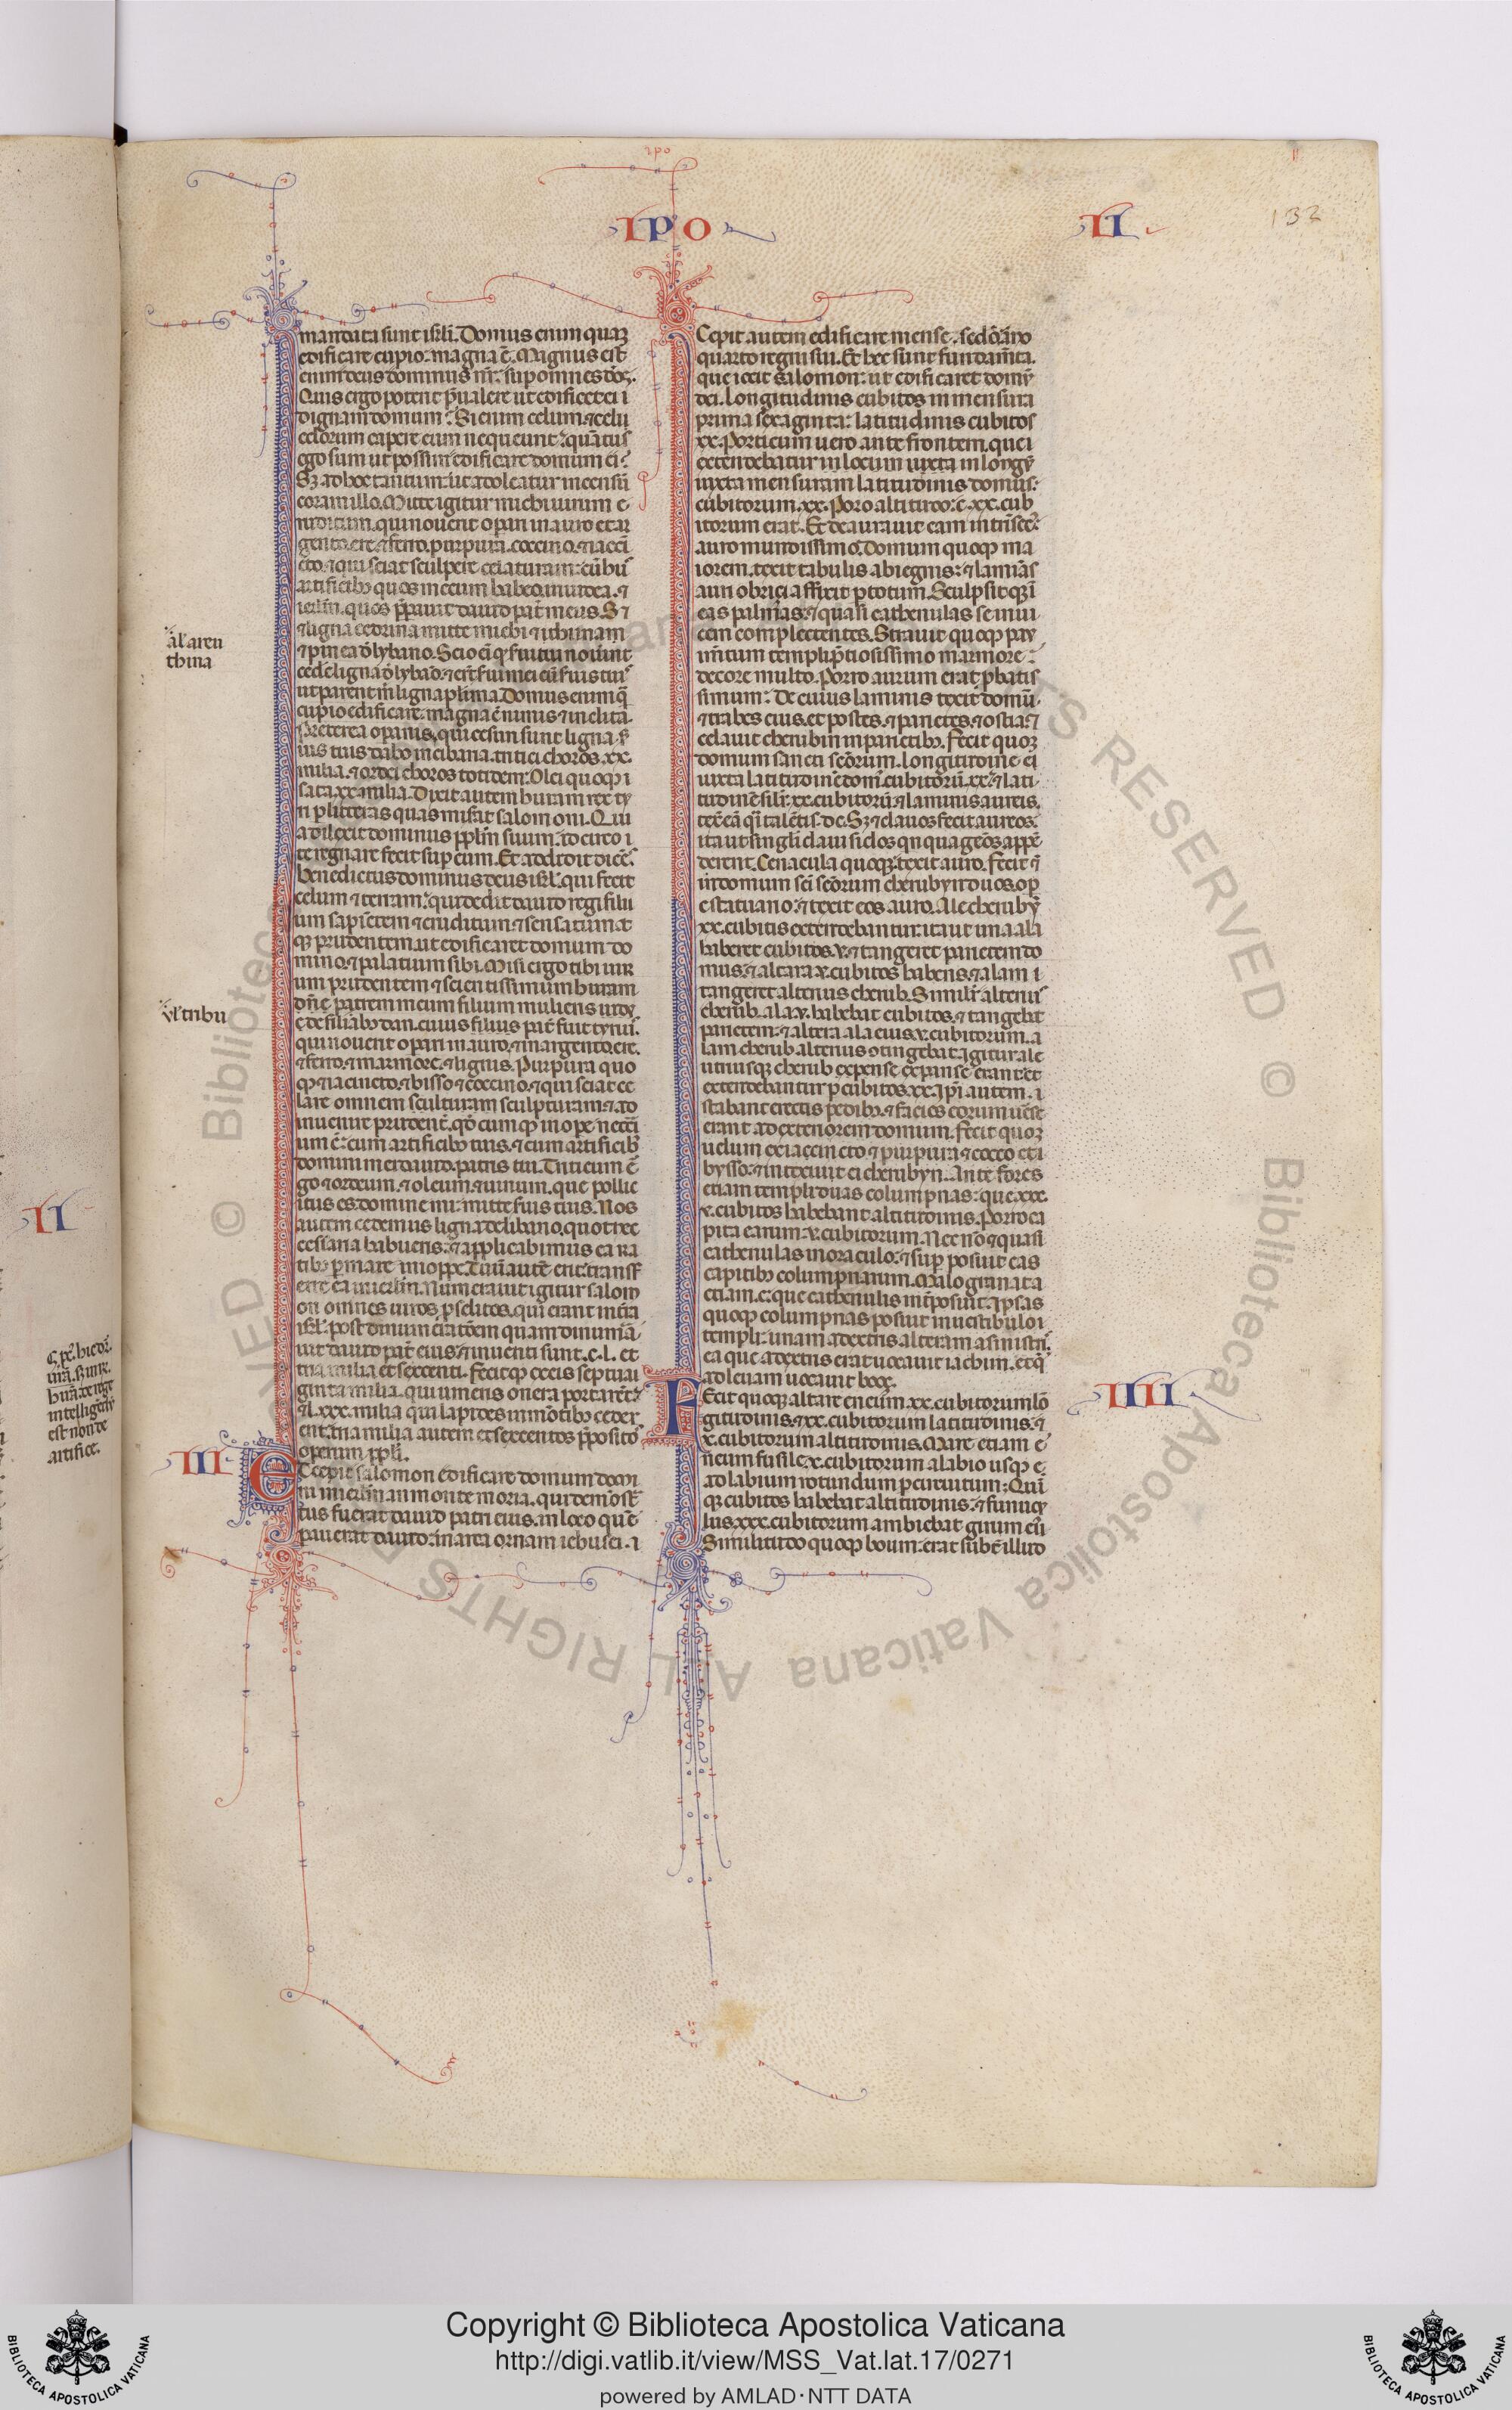 ipo
IPO
II
132
mandata sunt isrł. Domus enim quaʒ
edificare cupio: magna ē. Magnus est
enim deus dominus nr̄: sup omnes dōs.
Quis ergo poterit p̄ualere ut edificet ei
dignam domum? Si enim celum ⁊ celi
celorum capere eum nequeunt: quātus
ego sum ut possim edificare domum ei?
Sʒ ad hoc tantum: ut adoleatur incensū
coram illo. Mitte igitur michi uirum e
ruditum. qui nouerit opari in auro et ar
gento. ere ⁊ ferro. purpura. coccino. ⁊ iacci
cto. ⁊ qui sciat sculpere celaturam: cū his
artificibȝ quos mecum habeo in iudea. ⁊
ierłm. quos p̄pauit dauid pat̄ meus. S ⁊
⁊ ligna cedrina mitte michi ⁊ ithinam
⁊ pinea d̄ lybano. Scio eī qȝ serui tui nouint
cedere ligna d̄ lybāo. ⁊ erūt serui mei cū seruis tuis
ut parent m̄ ligna plurima. Domus enim q̄
cupio edificare: magna ē nimis ⁊ inclita.
Preterea opariis. qui cesuri sunt ligna s̄
uis tuis dabo in cibaria. tritici choros. xx.
milia. ⁊ ordei choros totidem: Olei quoqȝ
sata. xx. milia. Dixit autem huram rex ty
ri p litteras quas misat salomoni. Quia
dilexit dominus pplm̄ suum: idcirco
te regnare fecit sup eum. Et addidit dicēs.
Benedictus dominus deus isrł. qui fecit
celum ⁊ terram: qui dedit dauid regi fili
um sapiētem ⁊ eruditum ⁊ sensatum at
qȝ prudentem. ut edificaret domum do
mino. ⁊ palatium sibi. Misi ergo tibi uir
um prudentem ⁊ scientissimum huram
patrem meum filium mulieris
de filiabȝ dan. cuius filius pat̄ fuit tyriu.
qui nouerit opari in auro. ⁊ in argento. ere.
⁊ ferro. ⁊ marmore. ⁊ lignis. Purpura quo
qȝ ⁊ iacincto. ⁊ bisso ⁊ coccino. ⁊ qui sciat ce
lare omnem sculturam sculpturam. ⁊ ad
inuenire prudent̄. qd̄ cumqȝ in ope necēri
um ē: cum artificibȝ tuis. ⁊ cum artificibȝ
domini mei dauid. patris tui. Triticum ē
go ⁊ ordeum. ⁊ oleum. ⁊ uinum. que pollic
itus es domine mi: mitte suis tuis. Nos
autem cedemus ligna de libano. quot nec
cessaria habueris: ⁊ applicabimus ea ra
tibȝ p mare in ioppe. Tuū autē erit transf
erre ea in ierłm. Numerauit igitur salom
on omnes uiros pselitos. qui erant in tra
isrł: post dinumerationem quam dinumā
uit dauid pat̄ eius. ⁊ inuenti sunt. c. l. et
tria milia et sexcenti. Fecitqȝ ex eis septuai
ginta milia. qui umeris onera portarēt:
⁊ l. xxx. milia qui lapides in mōtibȝ ceder
ent: tria milia autem et sexcentos p̄positos
operum ppli.
III
ET cepit salomon edificare domum domi
ni in ierłm in monte moria. qui demōst̄
tus fuerat dauid patri eius. in loco quē
pauerat dauid: in area ornam iebusei.
Cepit autem edificare mense. sedō. āno
quarto regni sui. Et hec sunt fundam̄ta.
que iecit salomon: ut edificaret domū
dei. Longitudinis cubitos in mensura
prima sexaginta: latitudinis cubitos
xx. Porticum uero ante frontem. que
extendebatur in locum iuxta in longȳ
iuxta mensuram latitudinis domus:
cubitorum. xx. Porro altitudo: c. xx. cub
itorum erat. Et deaurauit eam intrīsec̄:
auro mundissimo. Domum quoqȝ ma
iorem. texit tabulis abiegnis: ⁊ lamīas
auri obrizi affixit p totum. Sculpsitqȝ ī
eas palmas: ⁊ quasi cathenulas se inui
cem complectentes. Strauit quoqȝ pau
im̄tum templi p̄tiosissimo marmore:
decore multo. Porro aurum erat pbatis
simum: De cuius laminis texit domū.
⁊ trabes eius. et postes. ⁊ parietes. ⁊ ostia: ⁊
celauit cherubin in parietibȝ. Fecit quoȝ
domum sancti scōrum. longitudinē ei
iuxta latitudinē dom̄: cubitorū. xx. ⁊ lati
tudinē silī: xx. cubitorū: ⁊ laminis aureis.
tex̄ eā q̄i talētis. dc. Sʒ ⁊ clauos fecit aureos.
ita ut singuli claui siclos quinquagēos appē
derent. Cenacula quoqȝ: texit auro. Fecit ⁊
in domum sci scōrum cherubyn duos. op
e statuario: ⁊ texit eos auro. Ale cherubȳ
xx. cubitis extendebantur: ita ut una ala
haberet cubitos. v. ⁊ tangeret parietem do
mus: ⁊ altara v. cubitos habens. ⁊ alam
tangeret alterius cherub. Similīr alterius
cherub. ala. v. habebat cubitos. ⁊ tangebat
parietem: ⁊ altera ala eius. v. cubitorum. a
lam cherub alterius ctingebat. Igitur ale
utriusqȝ cherub expense expanse erant: et
extendebantur p cubitos. xx. Ipi autem
stabant erectis pedibȝ. ⁊ facies eorum uerse
erant ad exteriorem domum. Fecit quoȝ
uelum ex iaccincto ⁊ purpura ⁊ cocco et
bysso: ⁊ intexuit ei cherubyn. Ante fores
etiam templi duas columpnas: que. xxx.
v. cubitos habebant altitudinis. Porro ca
pita earum: v. cubitorum. Nec nō ⁊ quasi
cathenulas in oraculo: ⁊ sup posuit eas
capitibȝ columpnarum. Malogranata
etiam. c: que cathenulis int̄posuit. Ipsas
quoqȝ columpnas posuit in uestibulo
templi: unam a dextris alteram a sinistris.
ea que a dextris erat uocauit iachim. et q̄
ad leuam uocauit booz.
IIII
FEcit quoqȝ altare eneum. xx. cubitorum lō
gitudinis. ⁊ xx. cubitorum latitudinis. ⁊
x. cubitorum altitudinis. Mare etiam e
neum fusile. x. cubitorum a labio usqȝ
ad labium rotundum p circuitum: Quī
qȝ cubitos habebat altitudinis: ⁊ funicu
lus. xxx. cubitorum ambiebat girum eiū.
Similitudo quoqȝ boum: erat subt̄ illud
al' aren
thina
ul' tribu
II
intelligent
est non de
artifice.
© Biblioteca Apostolica Vaticana ALL RIGHTS RESERVED
Copyright © Biblioteca Apostolica Vaticana
http://digi.vatlib.it/view/MSS_Vat.lat.17/0271
powered by AMLAD·NTT DATA
BIBLIOTECA APOSTOLICA VATICANA
BIBLIOTECA APOSTOLICA VATICANA